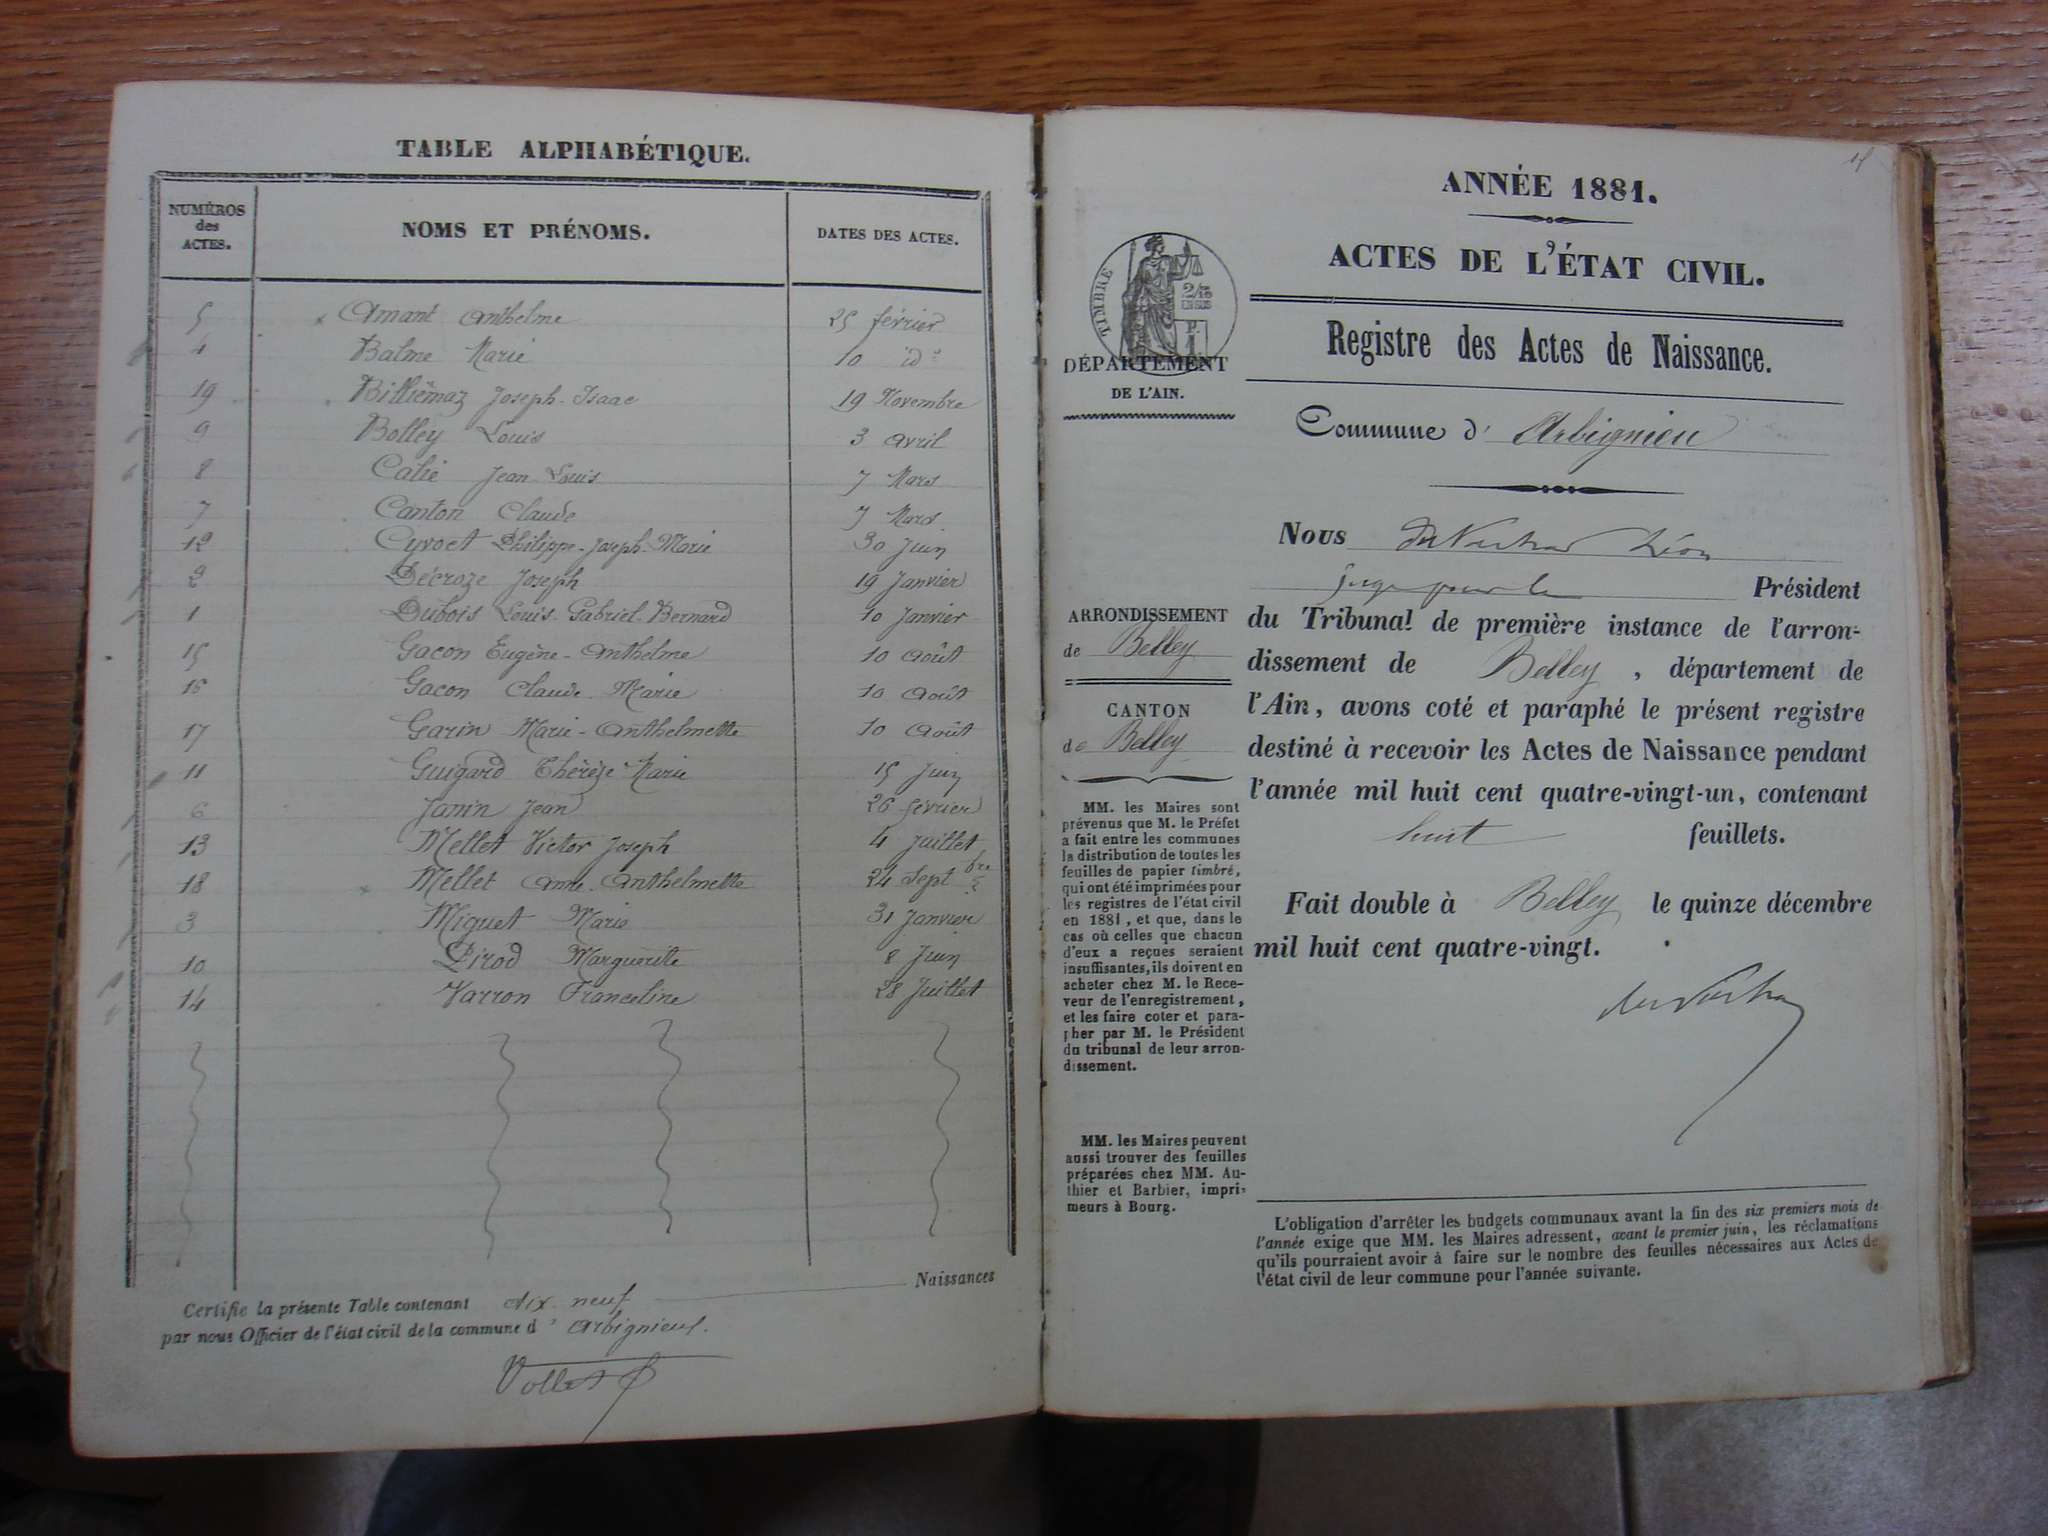 TABLE ALPHABÉTIQUE.
NUMÉROS des ACTES. NOMS ET PRÉNOMS. DATES DES ACTES.
5 Amant Anthelme 25 février
4 Balme Marie 10 id
19 Billiémaz Joseph-Isaac 19 Novembre
9 Bolley Louis 3 avril
8 Calie Jean Louis 7 Mars
7 Canton Claude 7 Mars
12 Cyvoct Philippe-Joseph-Marie 30 Juin
2 Décroze Joseph 19 Janvier
1 Dubois Louis-Gabriel-Bernard 10 Janvier
15 Gacon Eugène-Anthelme 10 Août
16 Gacon Claude-Marie 10 Août
17 Garin Marie-Anthelmette 10 Août
11 Guigard Thérèze-Marie 15 Juin
6 Janin Jean 26 février
13 Mellet Victor Joseph 4 Juillet
18 Mellet Anne-Anthelmette 24 Sept bre
3 Miguet Marie 31 Janvier
10 Pirod Marguerite 8 Juin
14 Varron Franceline 28 Juillet
Certifie la présente Table contenant dix neuf Naissances
par nous Officier de l'état civil de la commune d' Arbignieu.
Vollet
ANNÉE 1881.
ACTES DE L'ÉTAT CIVIL.
TIMBRE
2/10
EN SUS
Registre des Actes de Naissance.
DÉPARTEMENT
DE L'AIN.
Commune d' Arbignieu
Nous Léon
juge pour le Président
du Tribunal de première instance de l'arron-
dissement de Belley, département de
l'Ain, avons coté et paraphé le présent registre
destiné à recevoir les Actes de Naissance pendant
l'année mil huit cent quatre-vingt-un, contenant
huit feuillets.
Fait double à Belley le quinze décembre
mil huit cent quatre-vingt.
ARRONDISSEMENT
de Belley
CANTON
de Belley
MM. les Maires sont
prévenus que M. le Préfet
a fait entre les communes
la distribution de toutes les
feuilles de papier timbré,
qui ont été imprimées pour
les registres de l'état civil
en 1881, et que, dans le
cas où celles que chacun
d'eux a reçues seraient
insuffisantes, ils doivent en
acheter chez M. le Rece-
veur de l'enregistrement,
et les faire coter et para-
pher par M. le Président
du tribunal de leur arron-
dissement.
MM. les Maires peuvent
aussi trouver des feuilles
préparées chez MM. Au-
thier et Barbier, impri-
meurs à Bourg.
L'obligation d'arrêter les budgets communaux avant la fin des six premiers mois de
l'année exige que MM. les Maires adressent, avant le premier juin, les réclamations
qu'ils pourraient avoir à faire sur le nombre des feuilles nécessaires aux Actes de
l'état civil de leur commune pour l'année suivante.